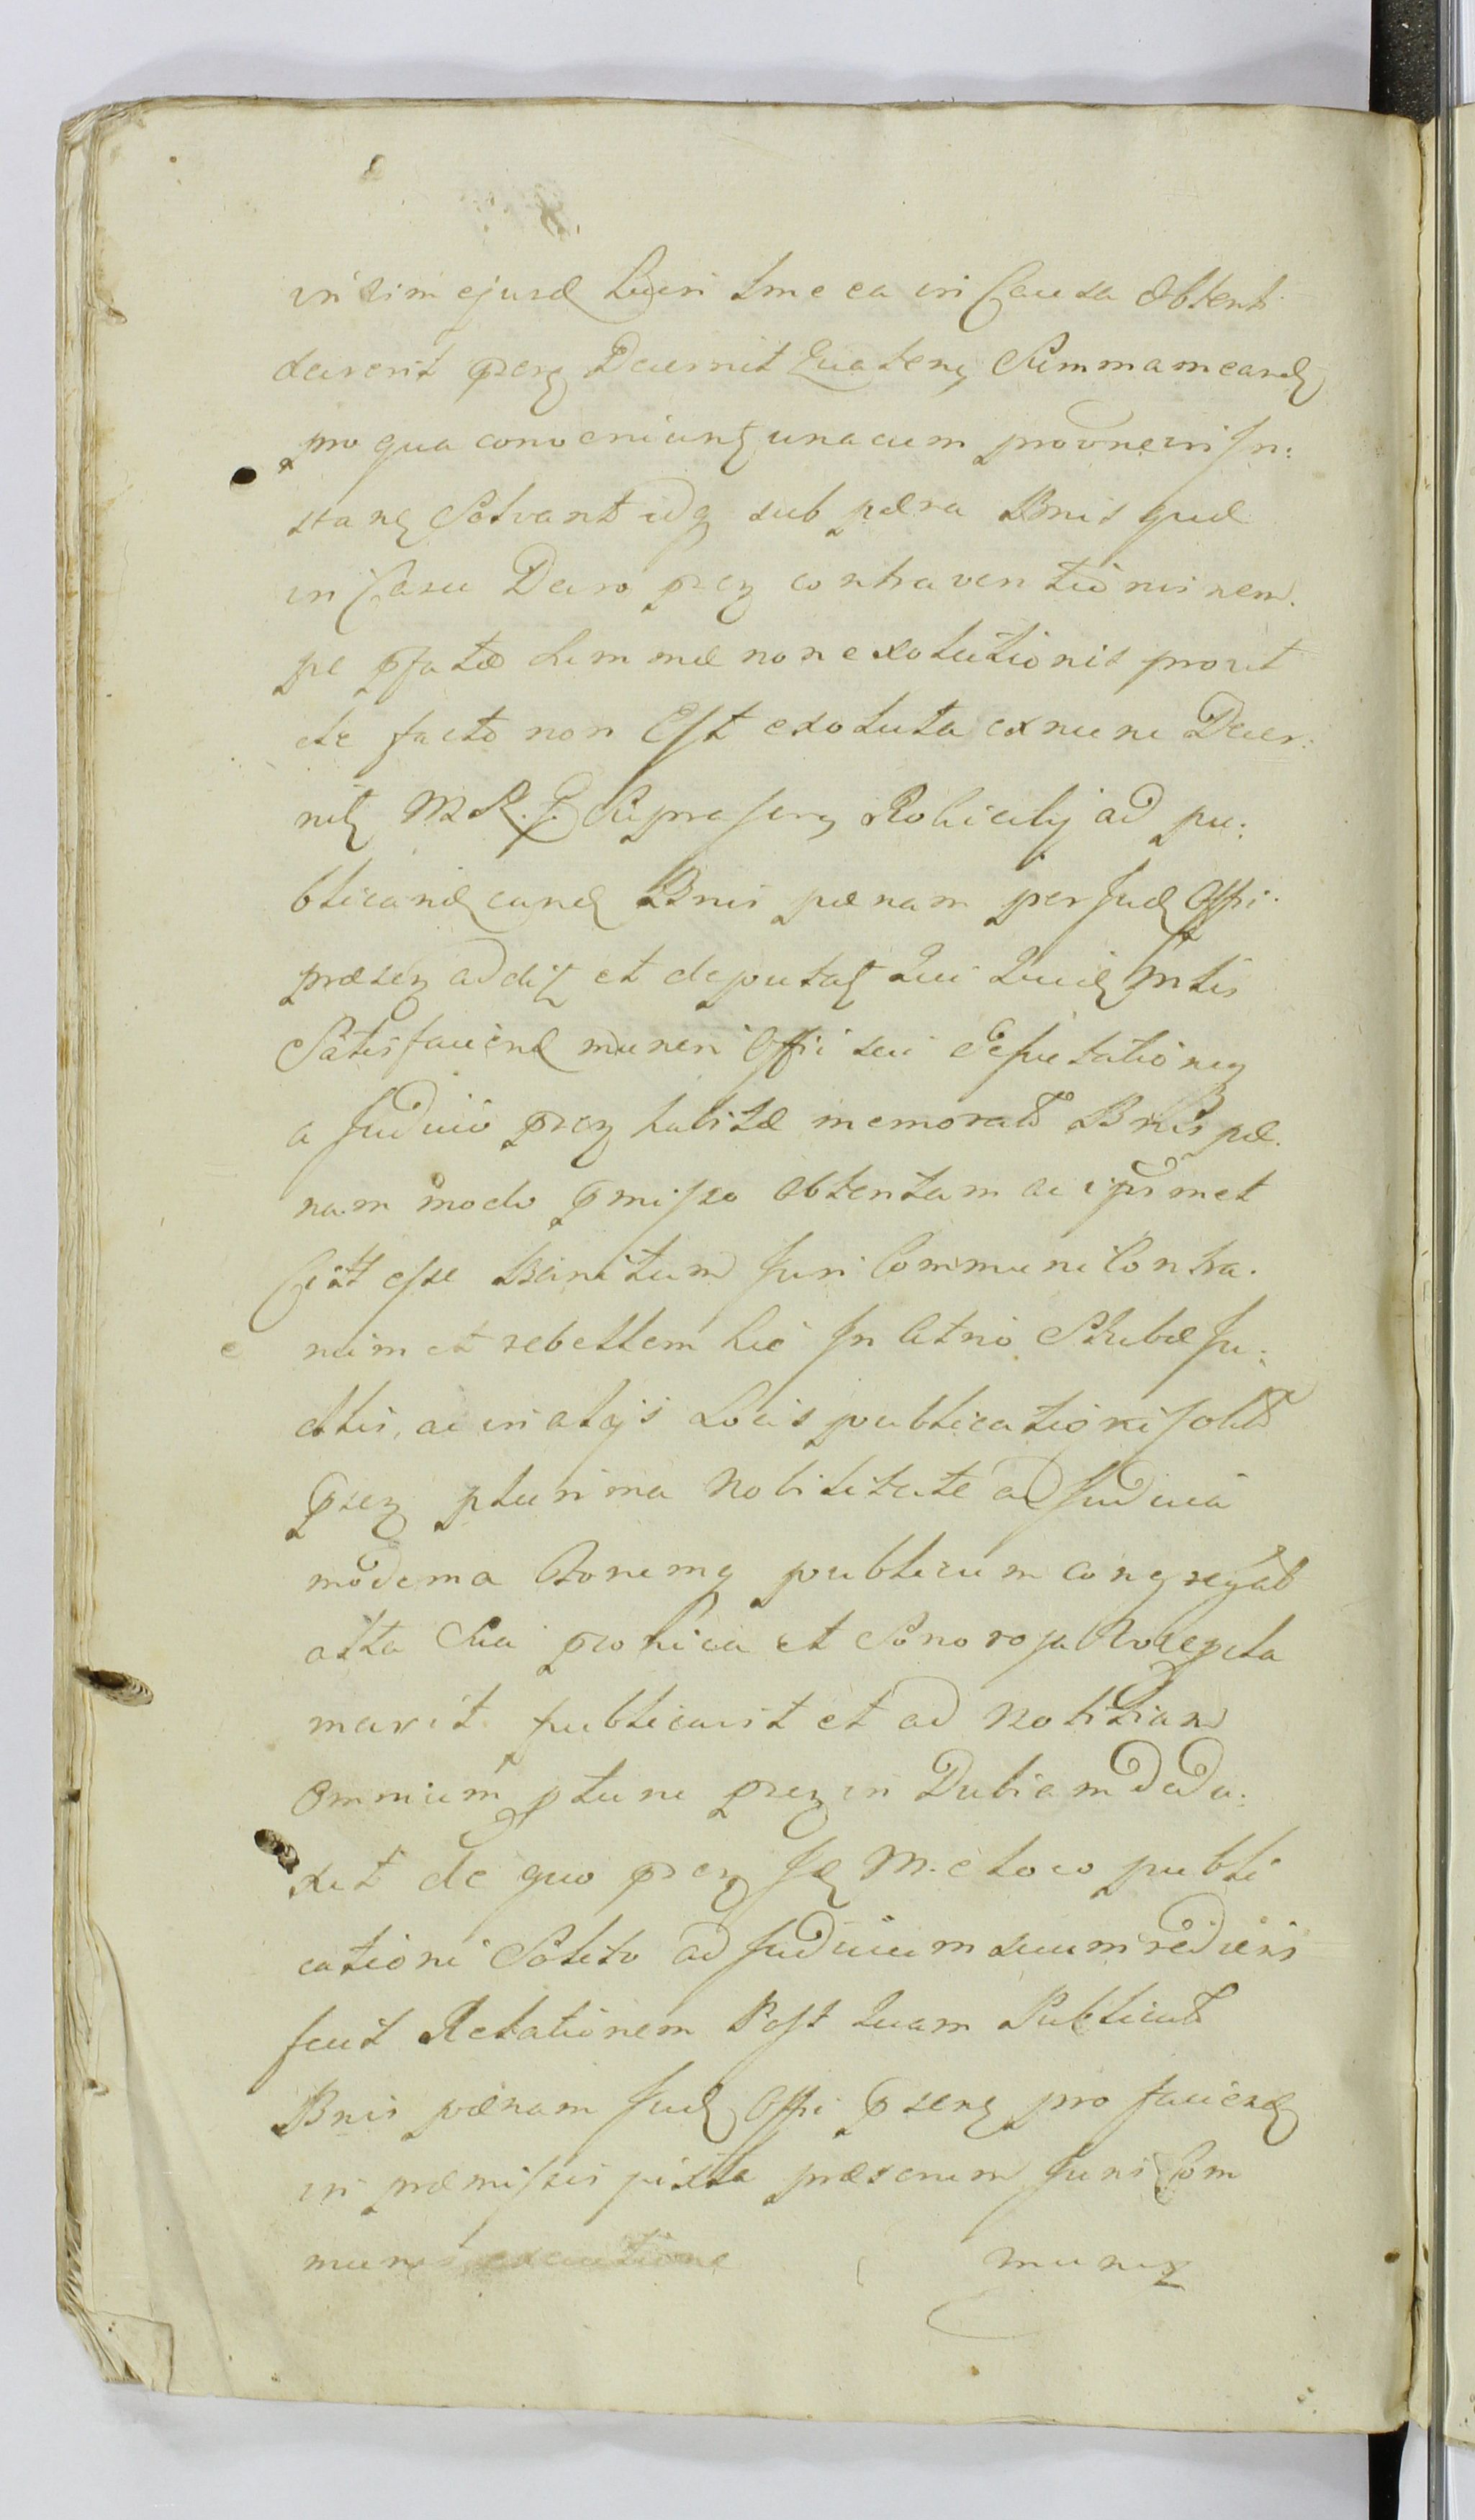 in vim ejusd Lucri tme ea in Causa obtent
decrerit psen Decernit quaten Summam eand
pro qua conveniunt una cum provne in In:
stan Solvant idq sub pæna Bnis quæ
in Casu Decro psen contraventionis nem.
pe pfatæ summæ non exolutionis prout
de facto non Est exoluta ex nunc Decer:
nit MR. G. Supra Rohicky ad pu:
blicand eand Bnis pænam per Jud Offi.
præsen addit et deputat Qui Quid Mtis
Satisfaciend muneri Offi sui Deputationeq
a Judicio psen habitæ memoratã Bnis pæ.
nam modo pmisso obtentam ac ipsmet
Citt esse Banitum Juri Communi Contra.
rium et rebellem hic In Atrio Stubæ Ju:
dlis, ac in alÿs Locis publicationi solitũ
psen plurima Nobilitate ad Judicia
moderna Bonumq publicum congregat
alta Sua prohica et Sonorosa Voce pcla
mavit publicavit et ad Notitiam
omnium ptune psen in Dubiam dedu:
xit de quo psen M. e loco publi
cationi Solito ad Judicium suum rediens
fecit Relationem Post Quam Publicatã
Bnis pænam Jud Offi psens pro faciend
in præmissis juxta præscrum Juris Com
munis executione munis